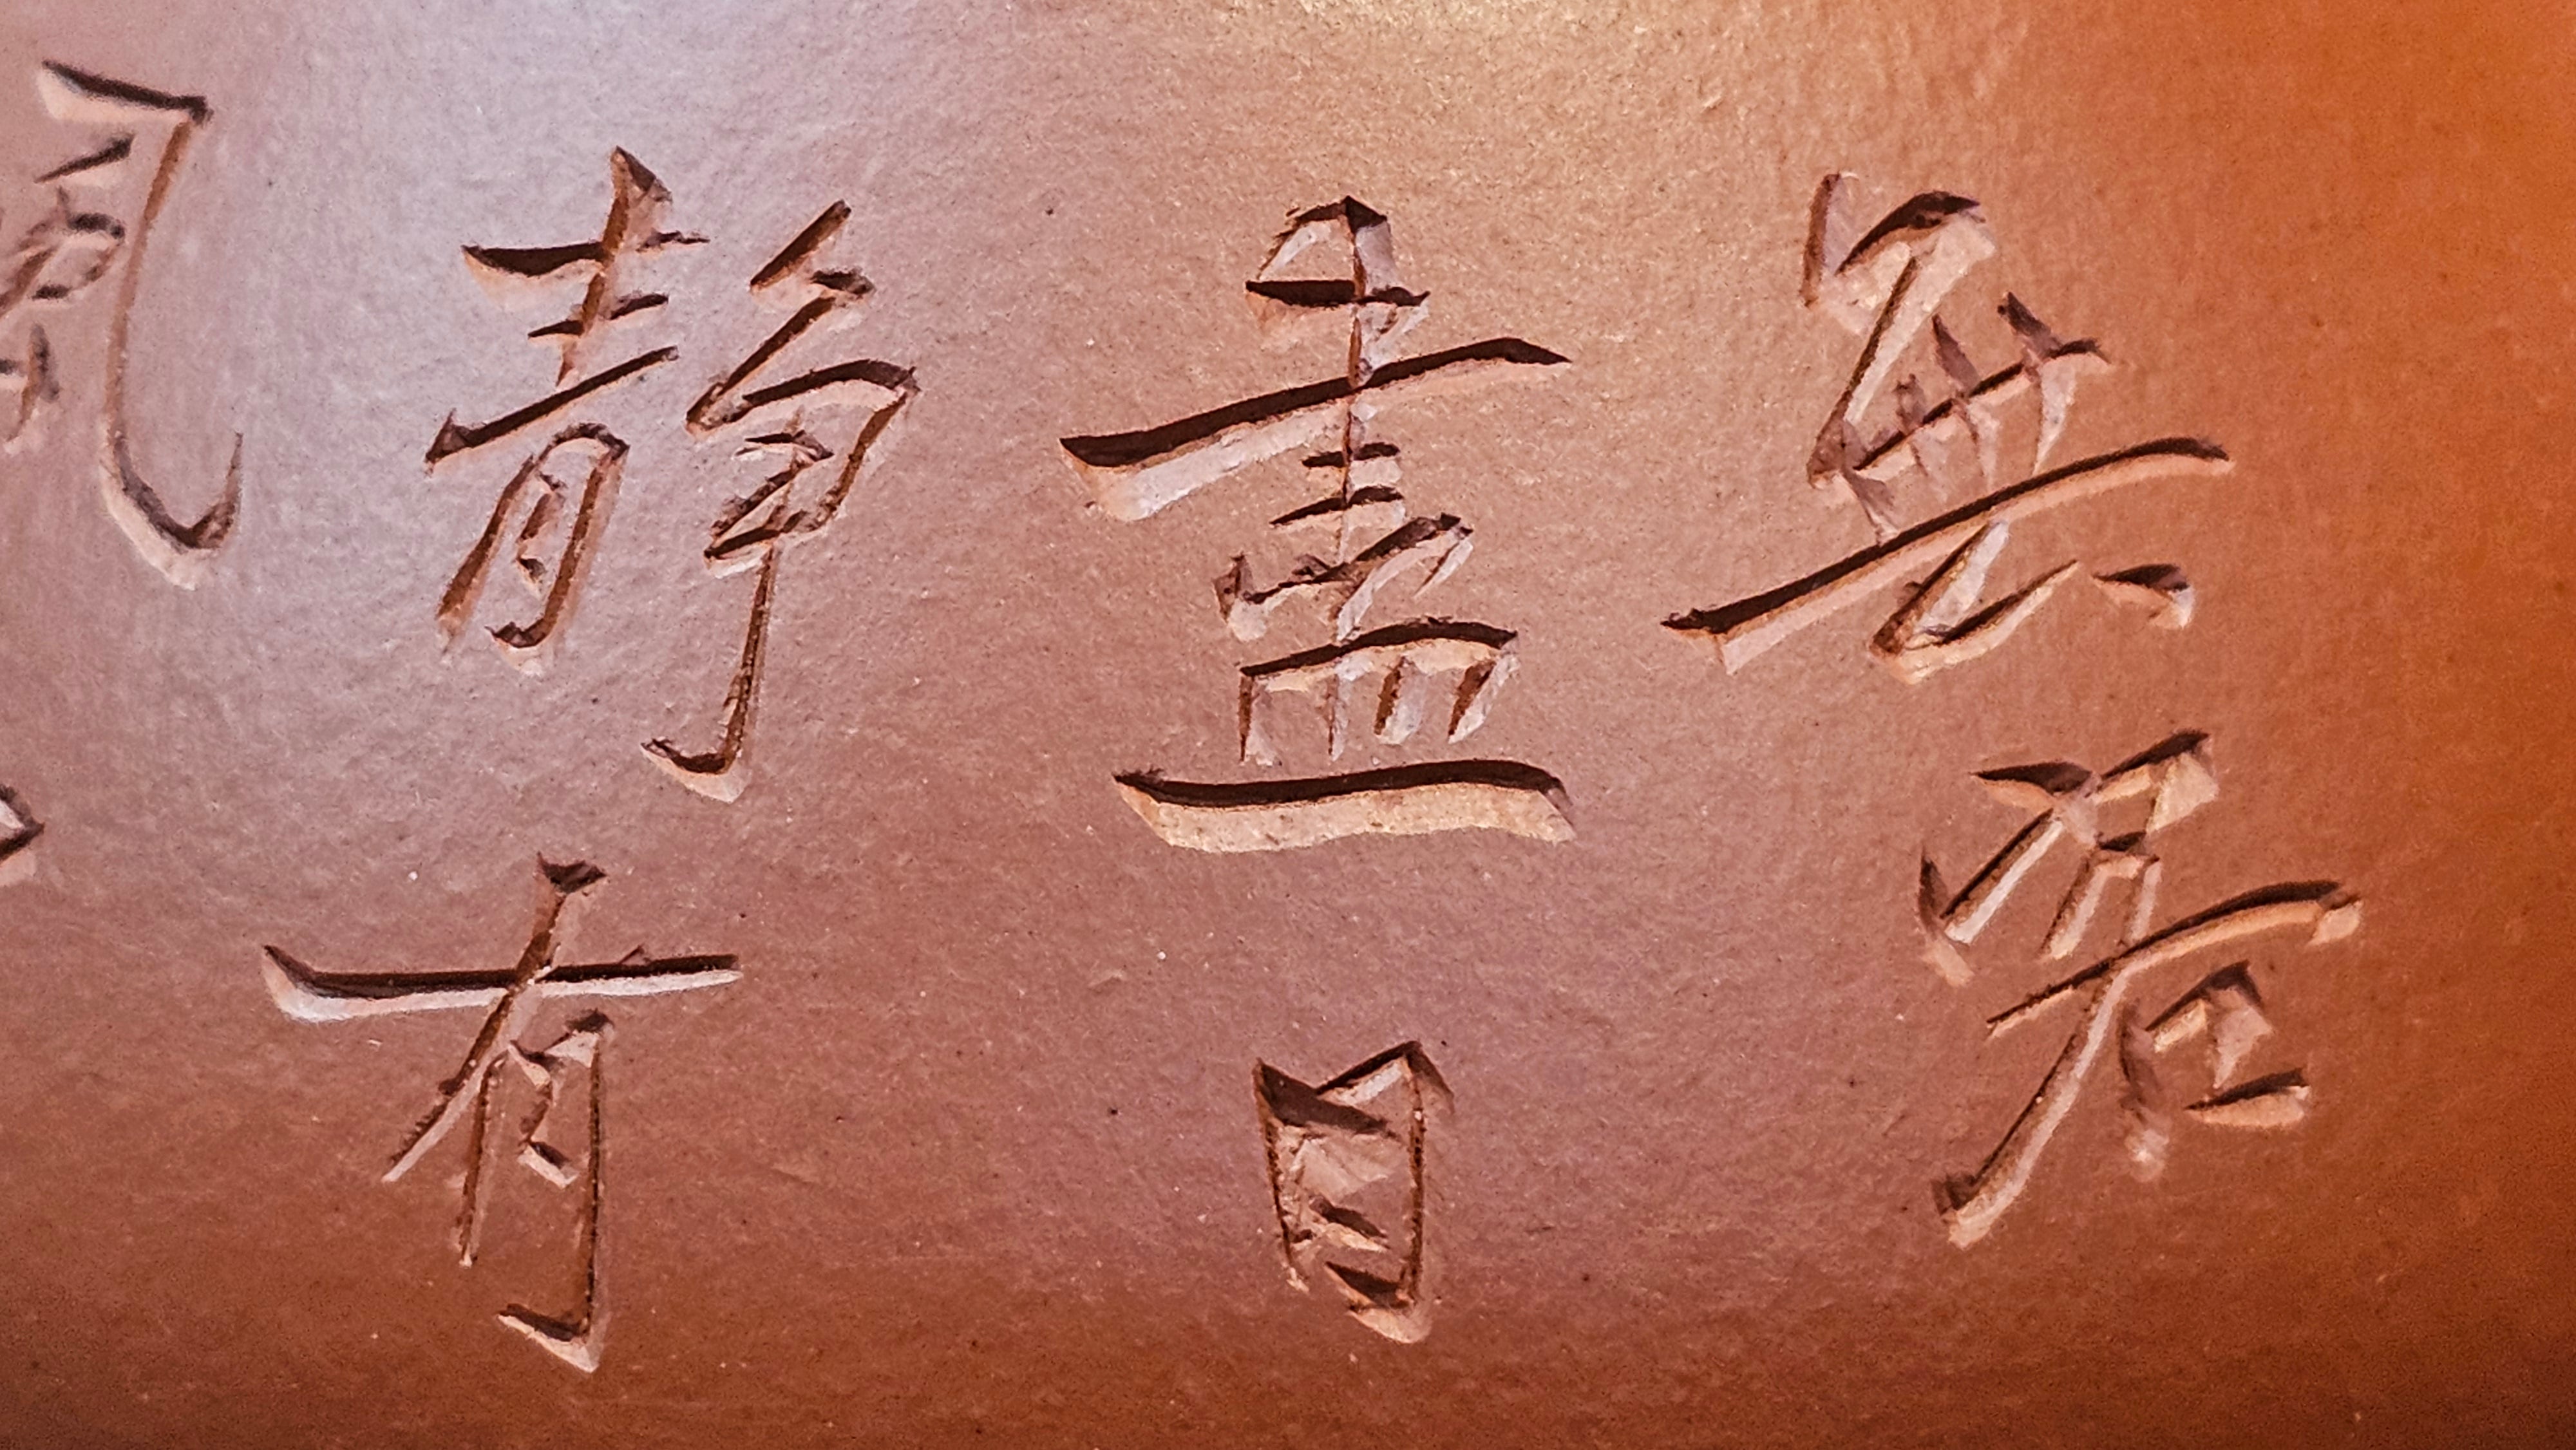 無客
盡日
靜有
風